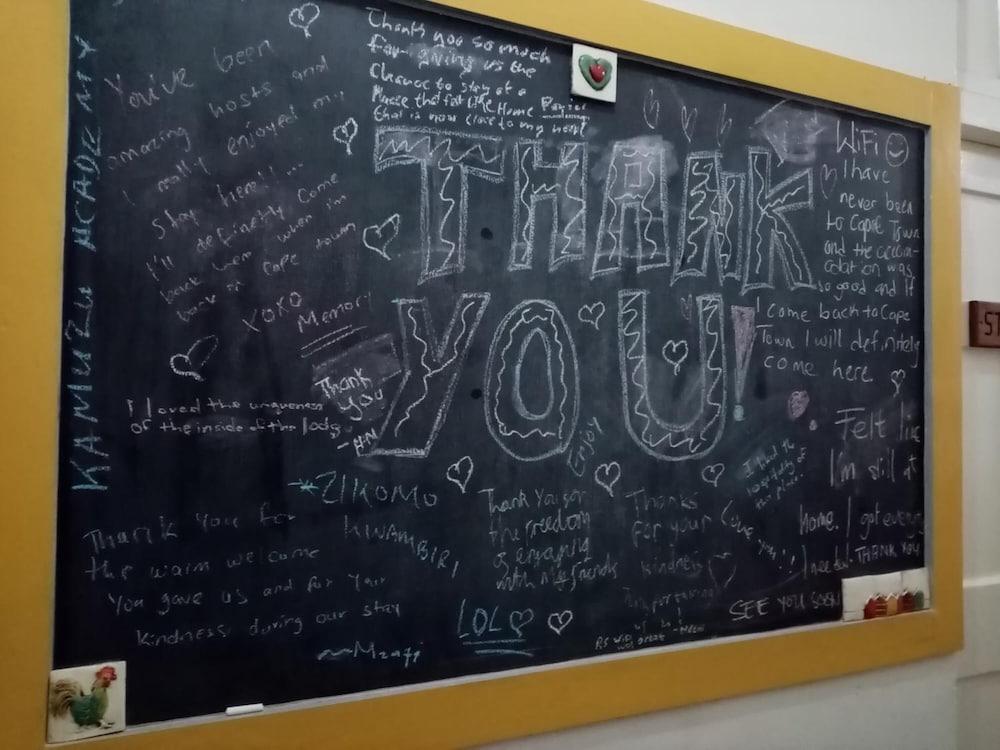 KAMUZU ACADEMY
You've been
amazing hosts and
I really enjoyed my
stay here!!...
I'll definetly come
back here when im
back in Cape town
XOXO
Memory
Thank you so much
for giving us the
Chance to stay at a
Place that felt like Home
that is now close to my heart
THANK
YOU!
WiFi
I have
never been
to Cape Town
and the accom-
odation was
so good and if
I come back to Cape
Town I will definitely
come here.
Thank
you
-H.N
I loved the uniqueness
of the inside of the
Enjoy
Felt like
I'm still at
home. I got everything
I need. THANK YOU
*ZIKOMO
KWAMBIRI
Thank you for
the warm welcome
you gave us and for your
kindness during our stay
Thank you for
the freedom
of enjoying
with my friends
LOL
Thanks
for your
kindness
Love you!!
SEE YOU SOON
PS WiFi
was great
ST